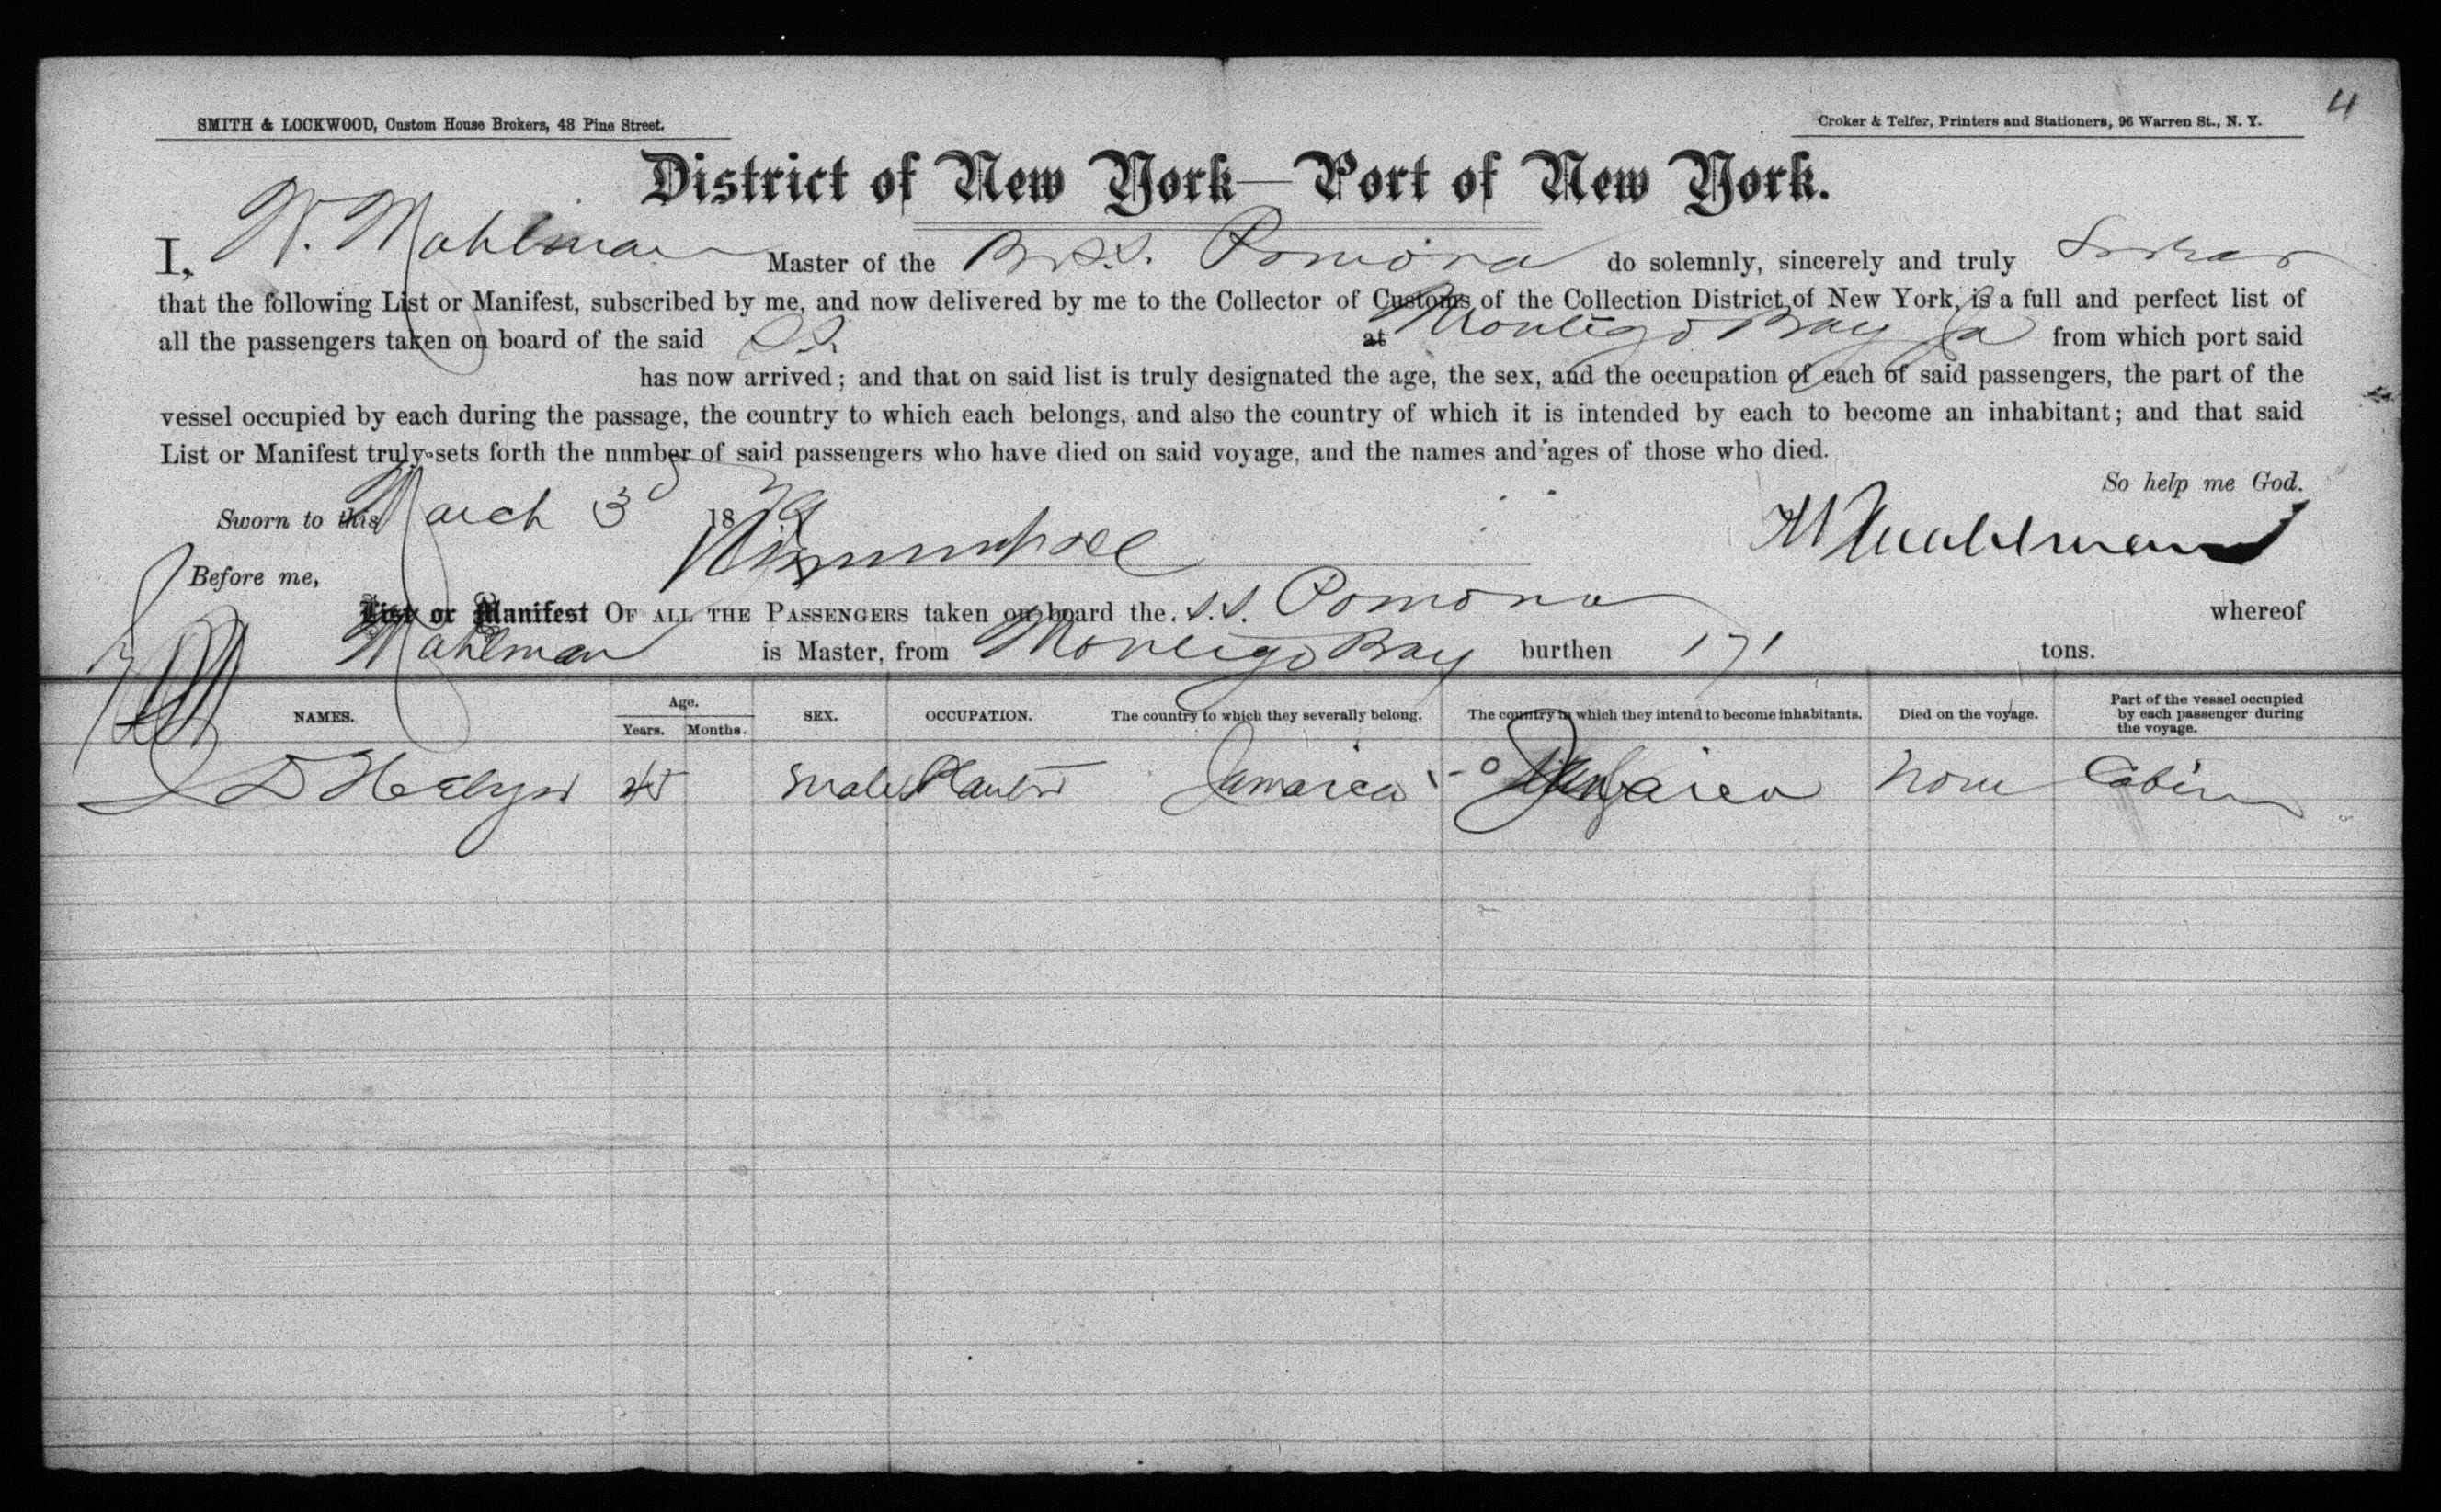 4
SMITH & LOCKWOOD, Custom House Brokers, 48 Pine Street.
Croker & Telfer, Printers and Stationers, 96 Warren St., N. Y.
District of New York—Port of New York.
I, W. Mahlman Master of the Br S.S. Pomona do solemnly, sincerely and truly Swear
that the following List or Manifest, subscribed by me, and now delivered by me to the Collector of Customs of the Collection District of New York, is a full and perfect list of
all the passengers taken on board of the said S.S. at Montego Bay Ja from which port said
has now arrived; and that on said list is truly designated the age, the sex, and the occupation of each of said passengers, the part of the
vessel occupied by each during the passage, the country to which each belongs, and also the country of which it is intended by each to become an inhabitant; and that said
List or Manifest truly sets forth the number of said passengers who have died on said voyage, and the names and ages of those who died.
So help me God.
Sworn to this March 3 1879
W Mahlman
Before me,
List or Manifest OF ALL THE PASSENGERS taken on board the S.S. Pomona whereof
Mahlman is Master, from Montego Bay burthen 171 tons.
NAMES. Age. Years. Months. SEX. OCCUPATION. The country to which they severally belong. The country in which they intend to become inhabitants. Died on the voyage. Part of the vessel occupied by each passenger during the voyage.
D 45 Male Planter Jamaica Jamaica None Cabin